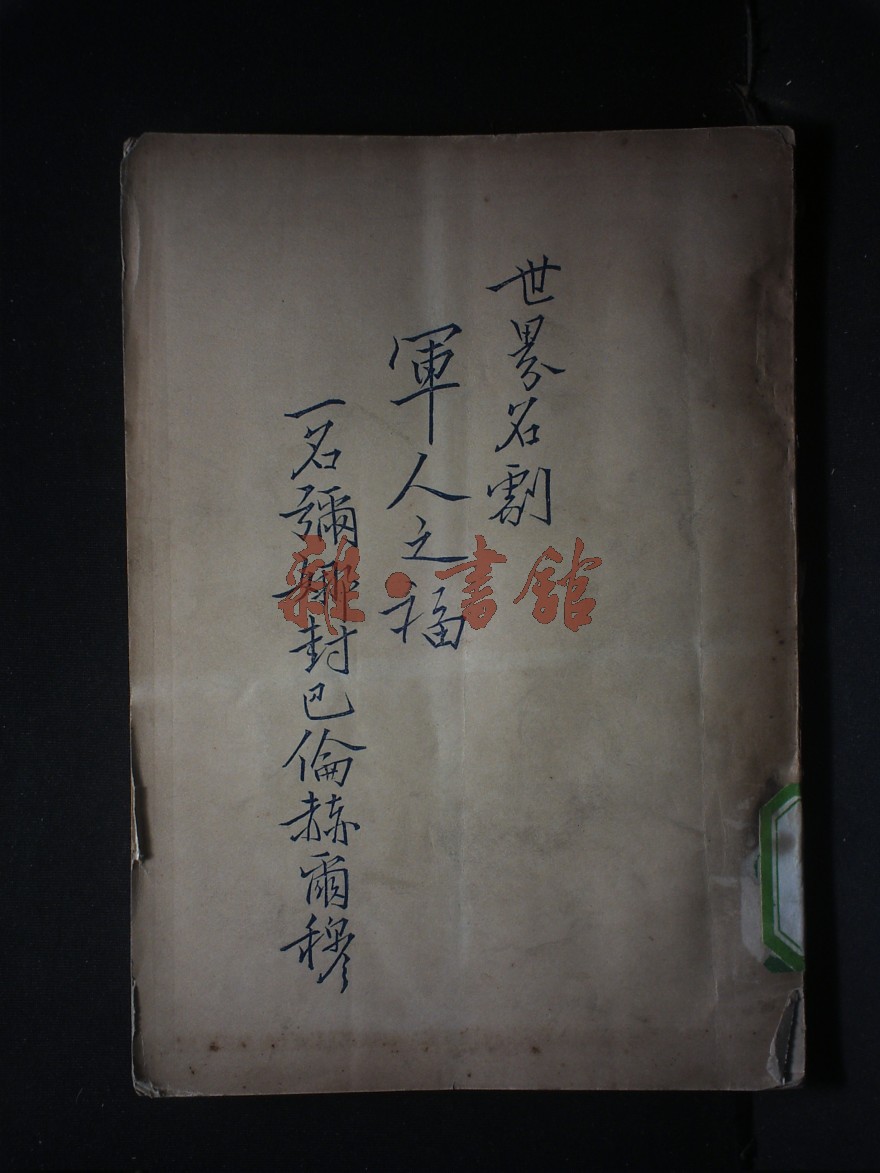 世界名劇
軍人之福
一名彌娜封巴倫赫爾穆
雜·書館